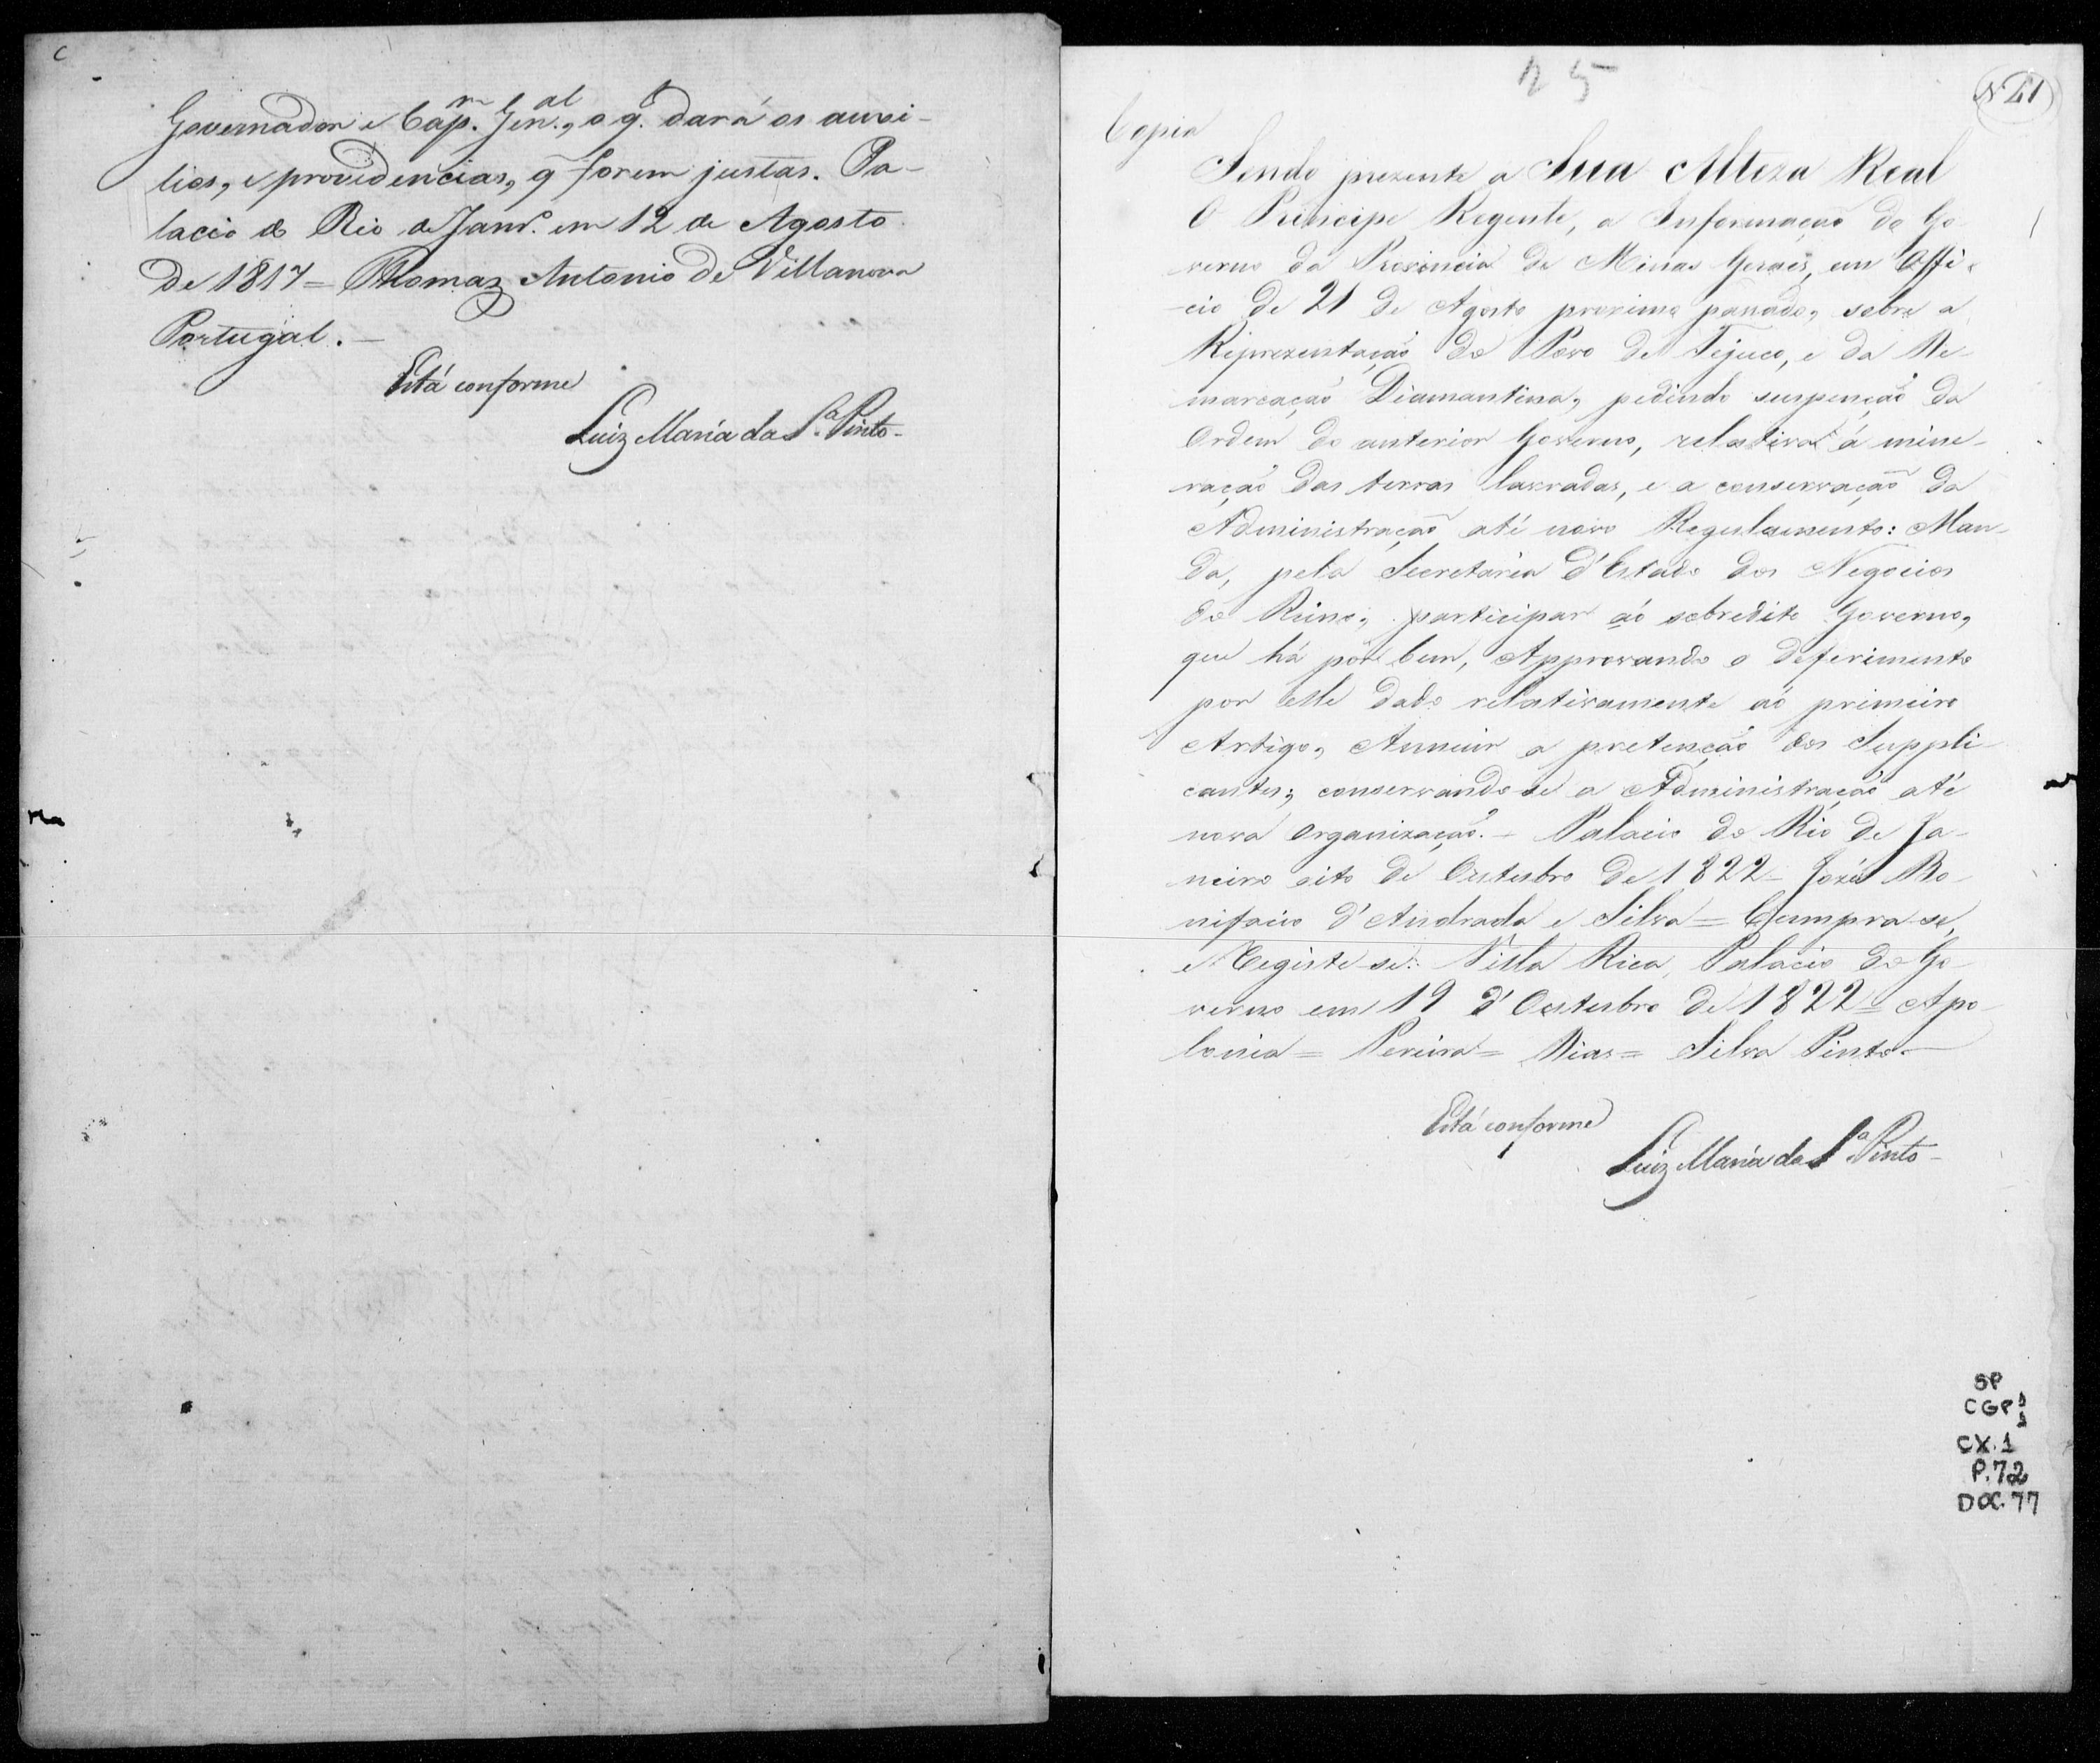 Governador e Cap.m Gen.al, o q. dará os auxi-
lios, e providencias, q̃ forem justas. Pa-
lacio do Rio de Janr.o em 12 de Agosto
de 1817 = Thomaz Antonio de Villanova
Portugal. —
Está conforme
Luiz Maria da S.a Pinto -
25
N 21
Copia
Sendo prezente a Sua Alteza Real
O Principe Regente, a Informação do Go-
verno da Provincia de Minas Geraes, em Offi-
-cio de 21 de Agosto proximo passado, sobre a
Reprezentação do Povo de Tejuco, e da De-
marcação Diamantina, pedindo suspenção da
Ordem do anterior Governo, relativa á mine-
ração das terras lavradas, e a conservação da
Administração até novo Regulamento: Man-
da, pela Secretaria d'Estado dos Negocios
do Reino, participar ao sobredito Governo,
que há por bem, Approvando o deferimento
por elle dado relativamente ao primeiro
Artigo, Annuir a pretenção dos Suppli-
cantes; conservando-se a Administração até
nova organização. - Palacio do Rio de Ja-
neiro oito de Outubro de 1822 - José Bo-
nifacio d'Andrada e Silva = Cumpra-se,
e Registe-se. Villa Rica, Palacio do Go-
verno em 19 d'Outubro de 1822 = Apo-
lonia = Pereira = Dias = Silva Pinto. —
Está conforme
Luiz Maria da S.a Pinto -
SP
CGP 1
1
CX. 1
P. 72
DOC. 77